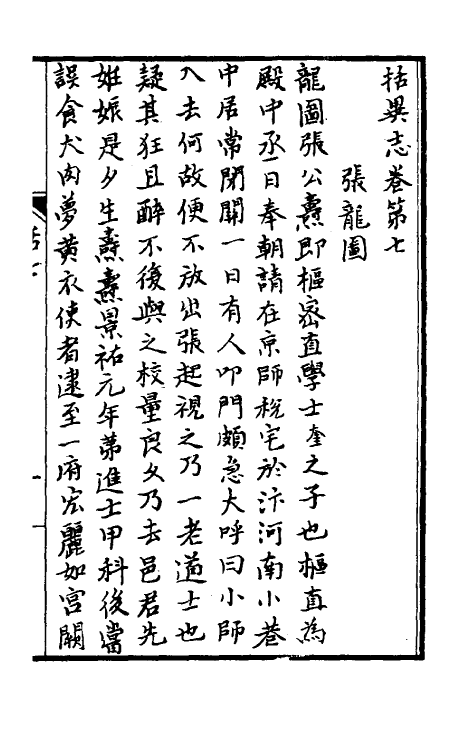 括異志卷第七
張龍圖
龍圖張公燾即樞密直學士奎之子也樞直為
殿中丞日奉朝請在京師稅宅於汴河南小巷
中居常閉關一日有人叩門頗急大呼曰小師
入去何故便不放出張起視之乃一老道士也
疑其狂且醉不復與之校量良久乃去邑君先
妊娠是夕生燾燾景祐元年第進士甲科後嘗
誤食犬肉夢黃衣使者逮至一府宏麗如宮闕